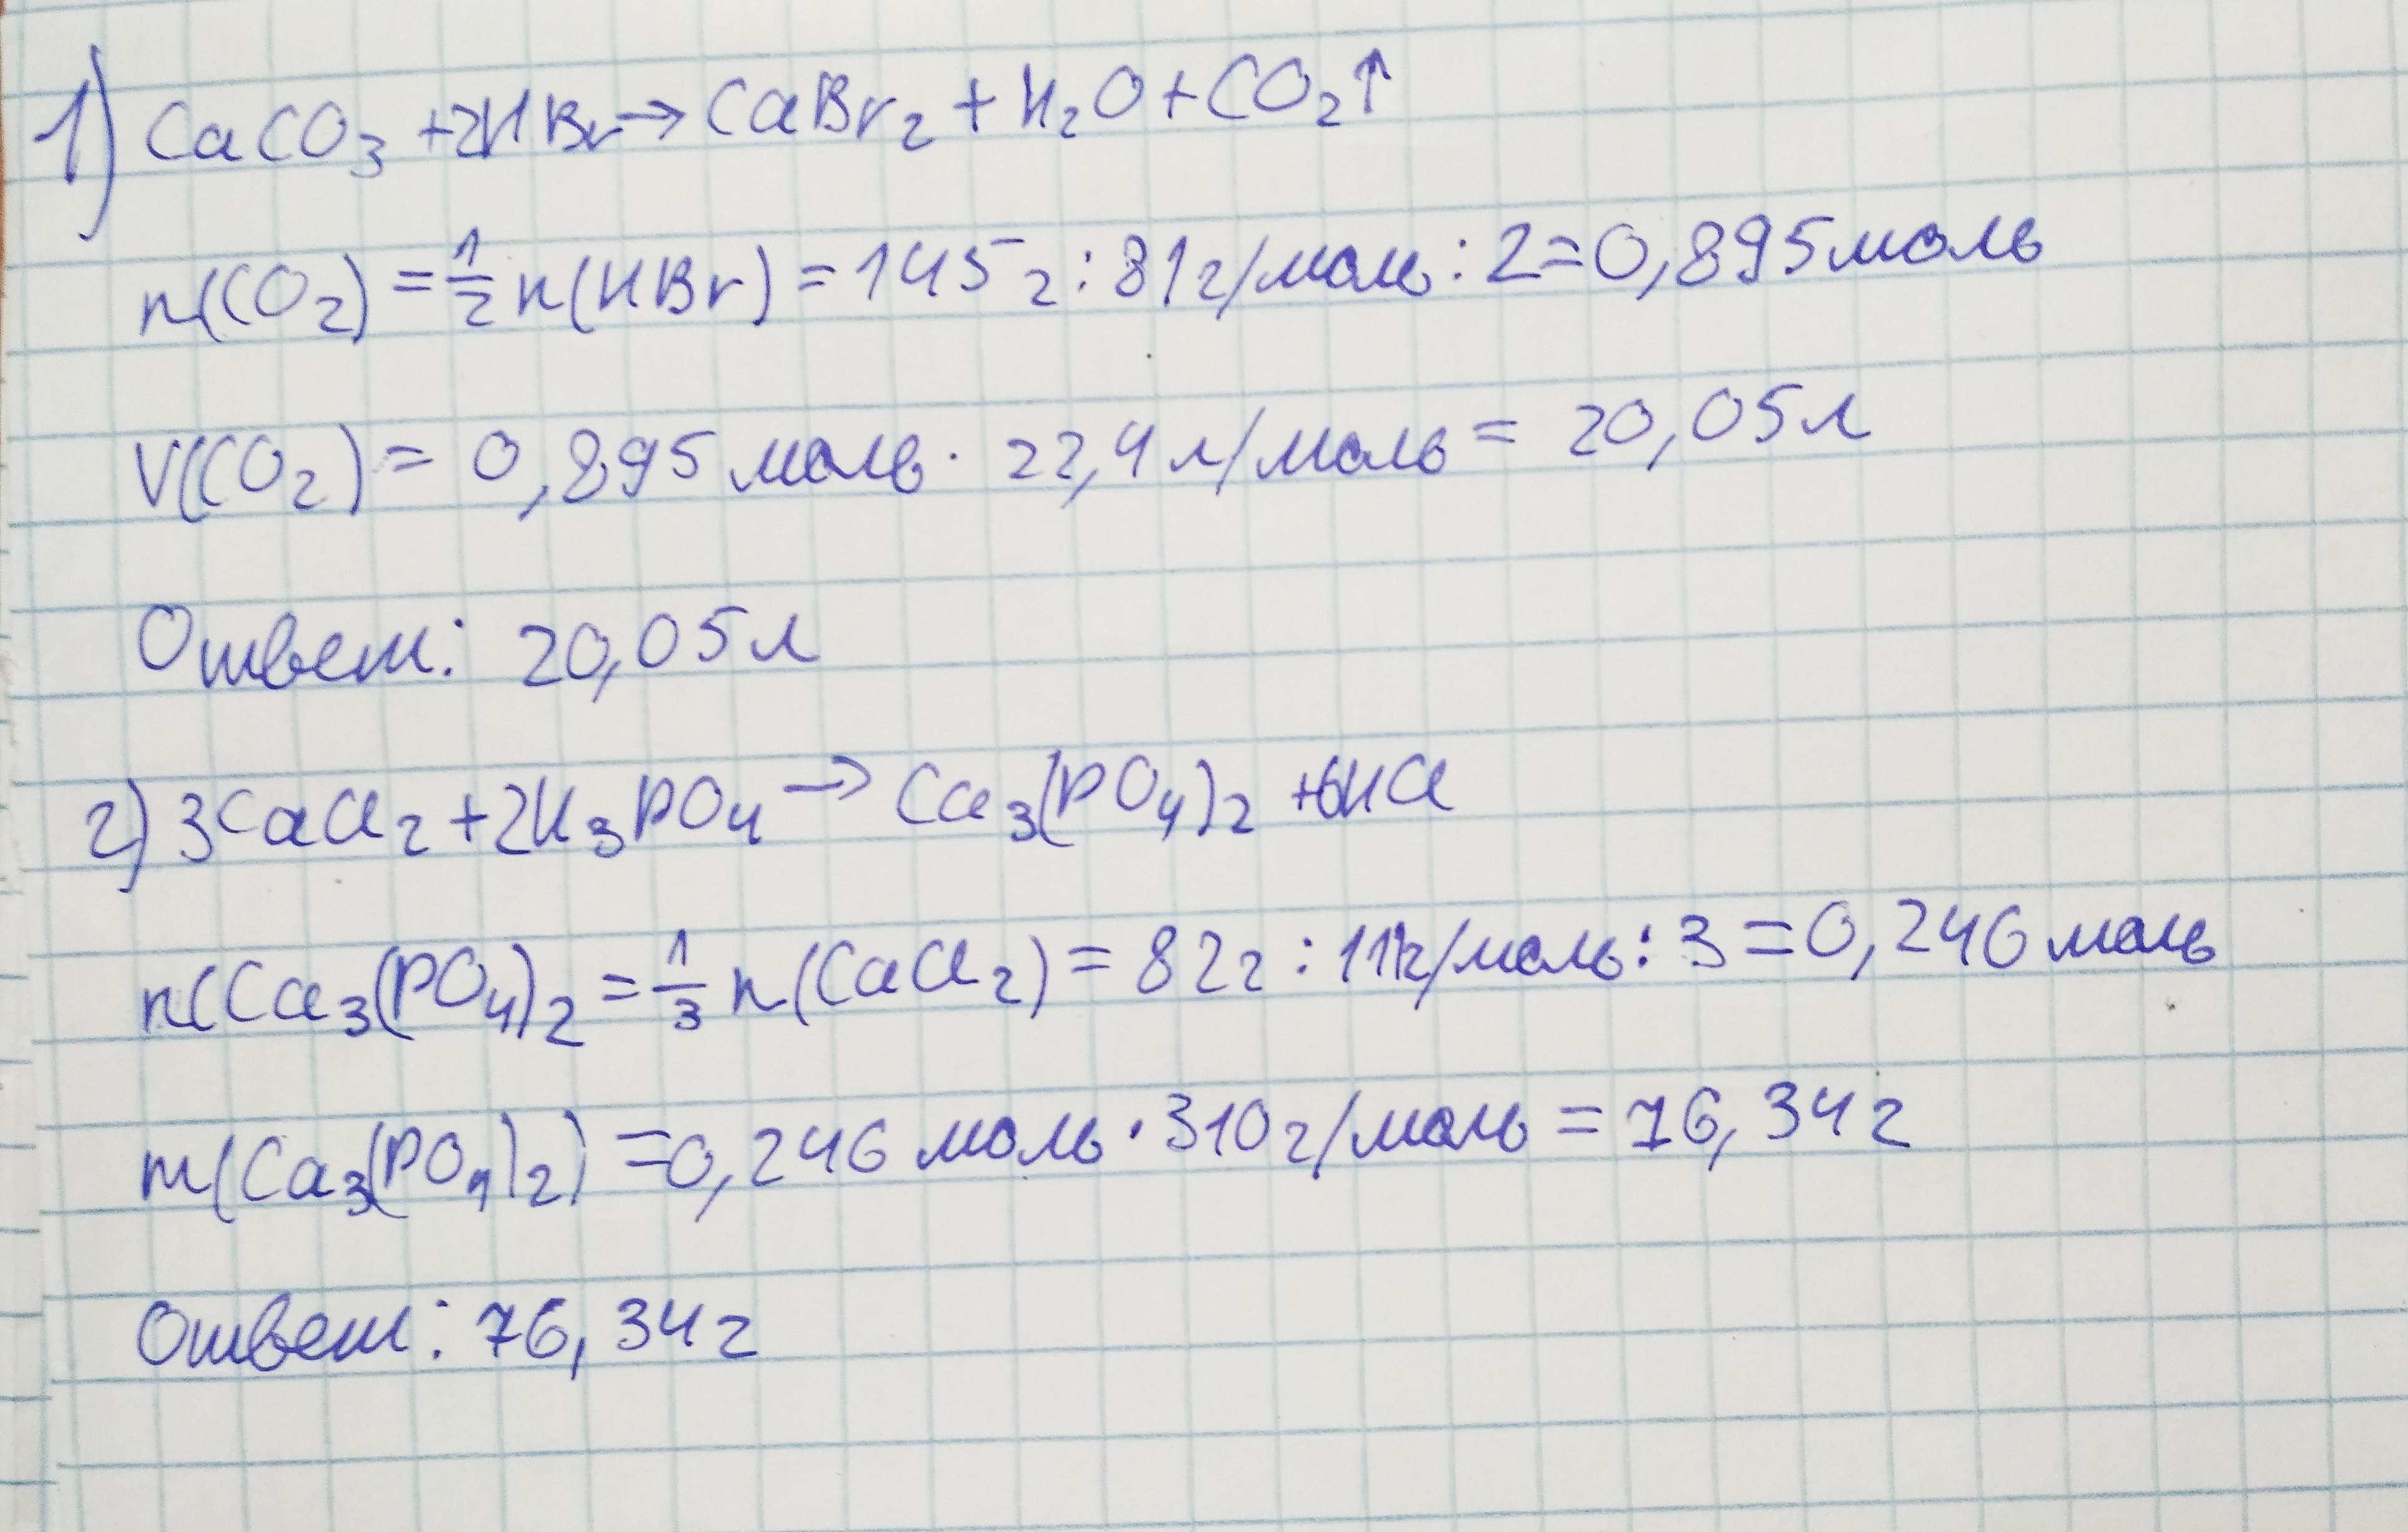 1) CaCO₃ + 2HBr → CaBr₂ + H₂O + CO₂↑
n(CO₂) = 1/2 n(HBr) = 145 г : 81 г/моль : 2 = 0,895 моль
V(CO₂) = 0,895 моль · 22,4 л/моль = 20,05 л
Ответ: 20,05 л
2) 3CaCl₂ + 2H₃PO₄ → Ca₃(PO₄)₂ + 6HCl
n(Ca₃(PO₄)₂ = 1/3 n(CaCl₂) = 82 г : 111 г/моль : 3 = 0,246 моль
m(Ca₃(PO₄)₂) = 0,246 моль · 310 г/моль = 76,34 г
Ответ: 76,34 г